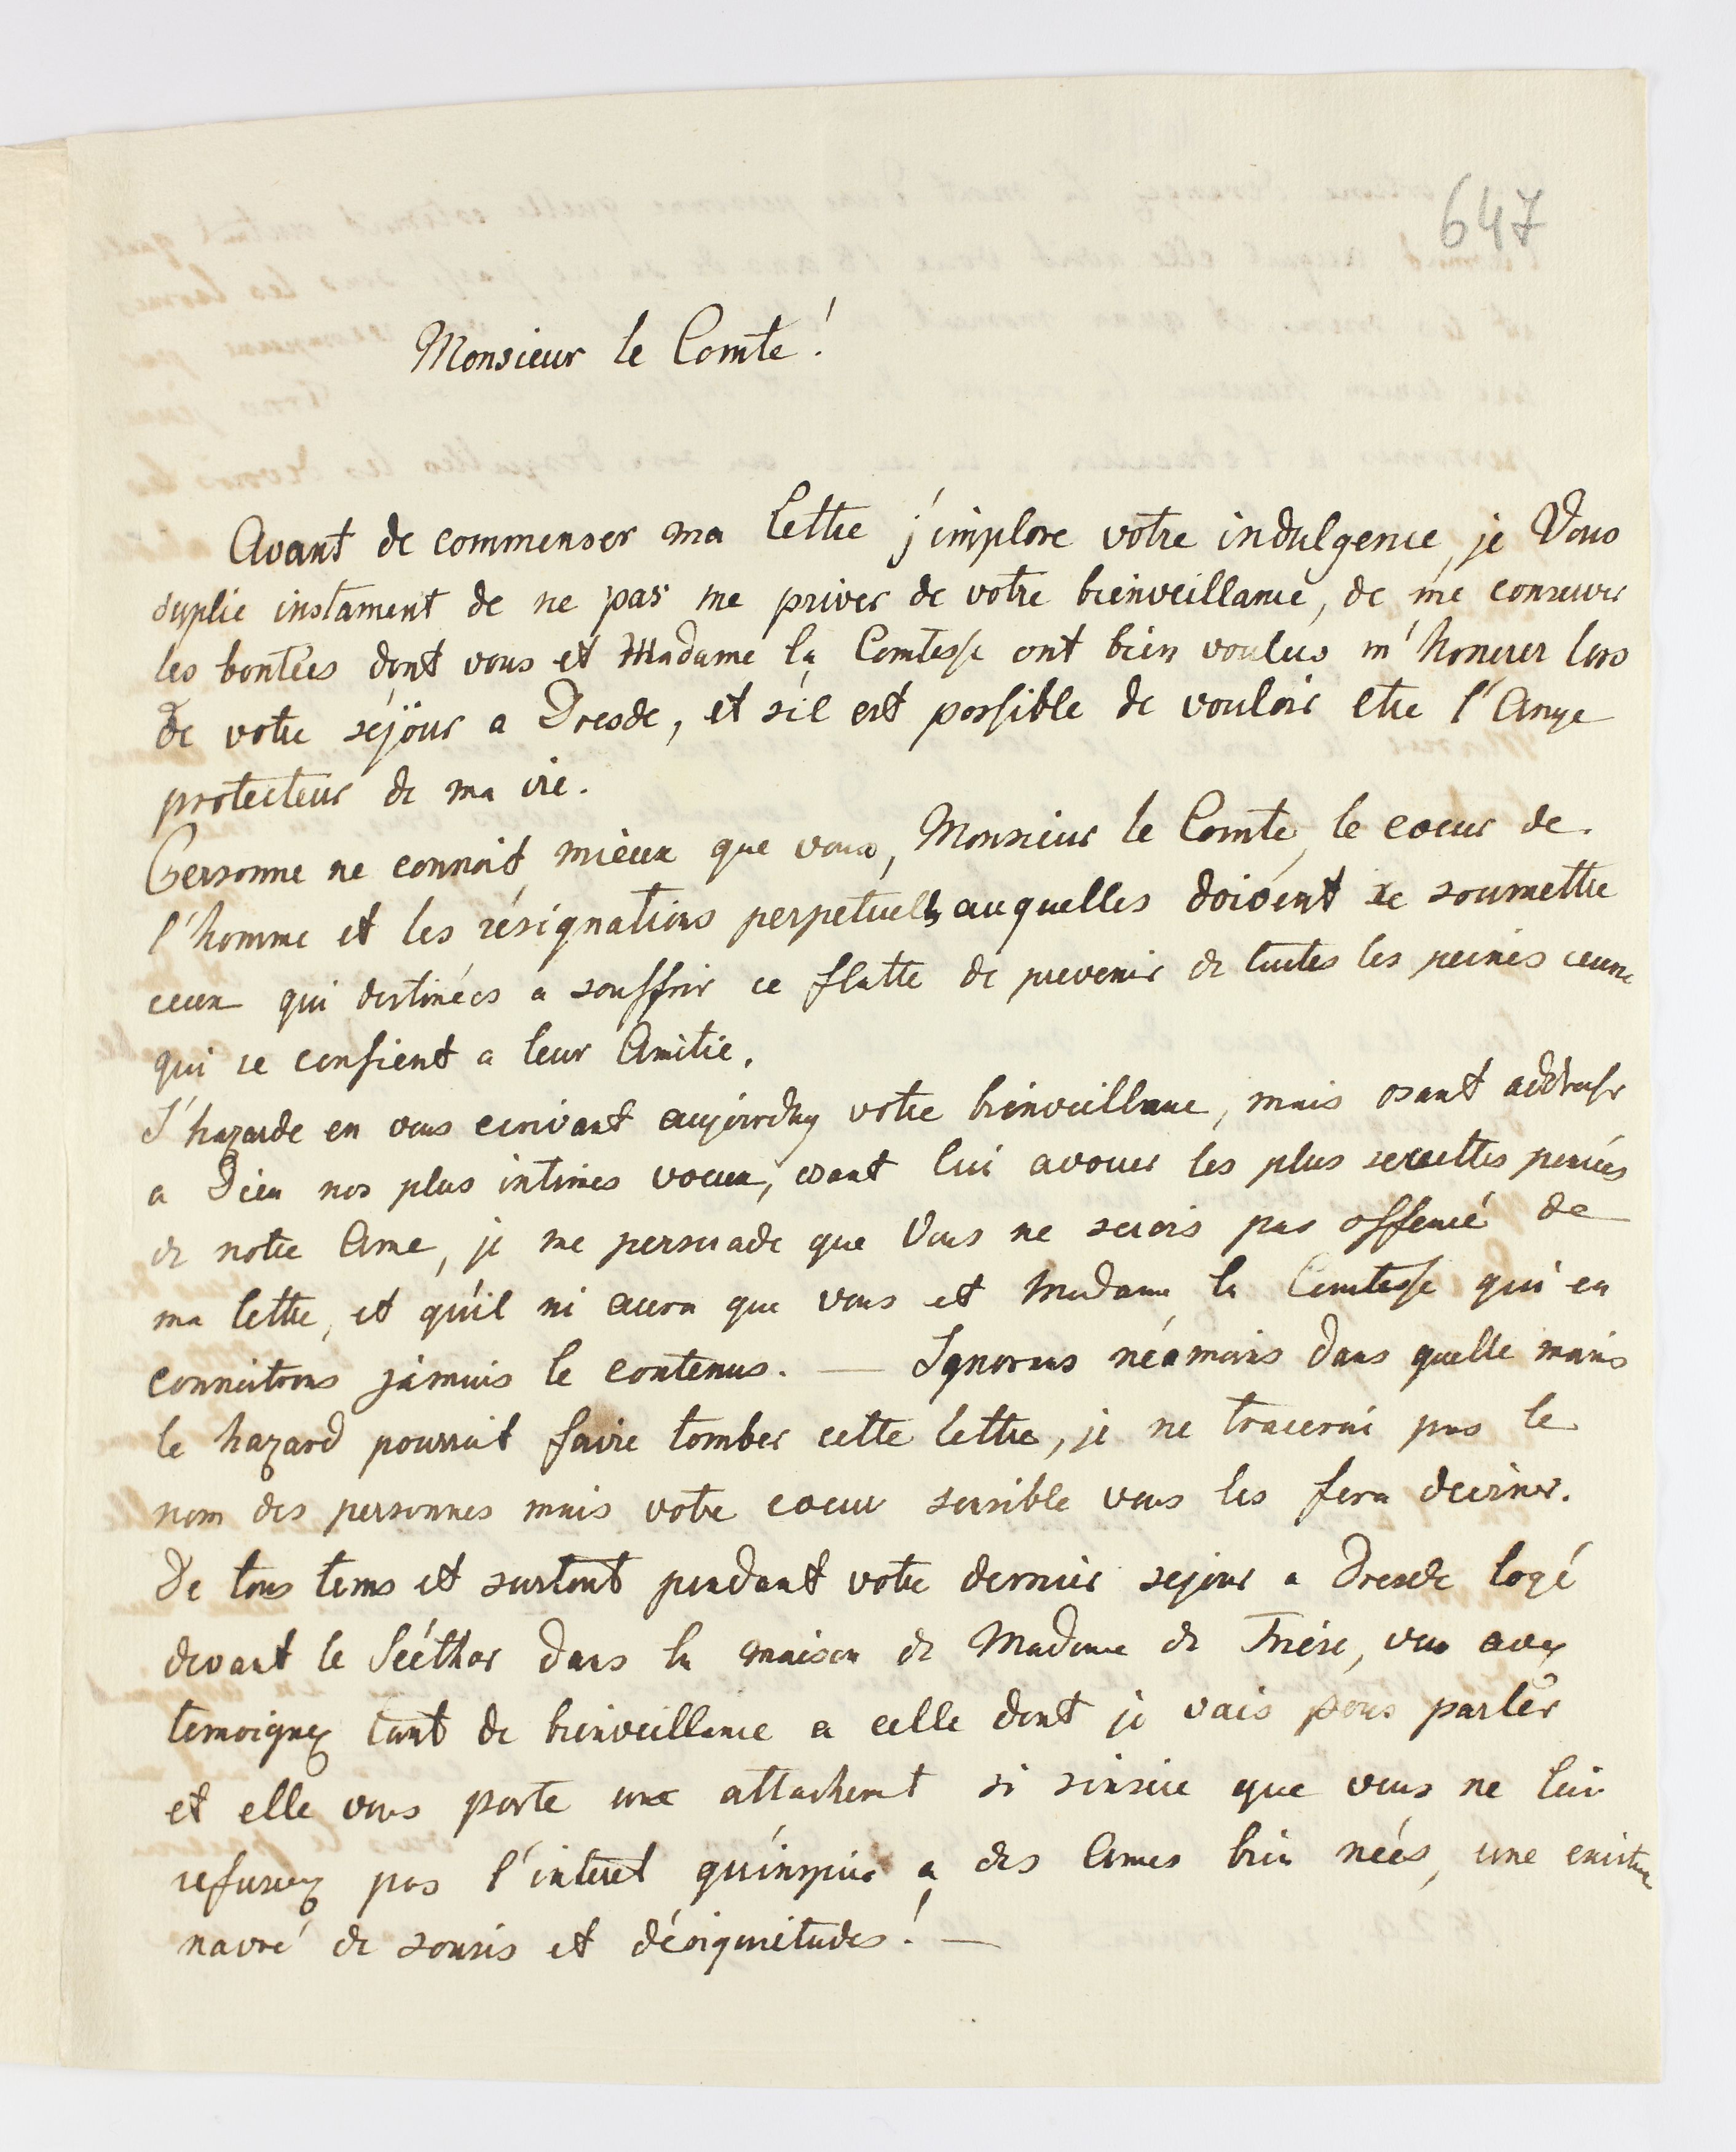 647
Monsieur le Comte!
Avant de commenser ma lettre j'implore votre indulgence, je Vous
suplie instament de ne pas me priver de votre bienveillance, de me conserver
les bontées dont vous et Madame la Comtesse ont bien voulus m'honerer lors
de votre séjour a Dresde, et s'il est possible de vouloir etre l'Ange
protecteur de ma vie.
Personne ne connoit mieux que vous, Monsieur le Comte, le coeur de
l'homme et les résignations perpetuells auquelles doivent se soumettre
ceux qui destinées a souffrir ce flatte de prevenir de toutes les peines ceux
qui se confient a leur Amitie.
J'hazarde en vous ecrivant aujourdhuy votre bienveillance, mais osant addresser
a Dieu nos plus intimes voeux, osant lui avouer les plus secrettes pensées
de notre Ame, je me persuade que Vous ne serois pas offensé de
ma lettre, et qu'il ni aura que vous et Madame la Comtesse qui en
connoitrons jamais le contenus. — Ignorans néamoins dans quelle mains
le hazard pourrait faire tomber cette lettre, je ne tracerai pas le
nom des personnes mais votre coeur sensible vous les fera deviner.
De tous tems et surtout pendant votre dernier sejour a Dresde logé
devant le Séethor dans la maison de Madame de Friese, vous avez
temoignez tant de bienveillance a celle dont je vais vous parler
et elle vous porte une attachemt si sinsere que vous ne lui
refuserez pas l'interet qu'inspire a des Ames bien néés, une existence
navré de soucis et désiquietudes! —